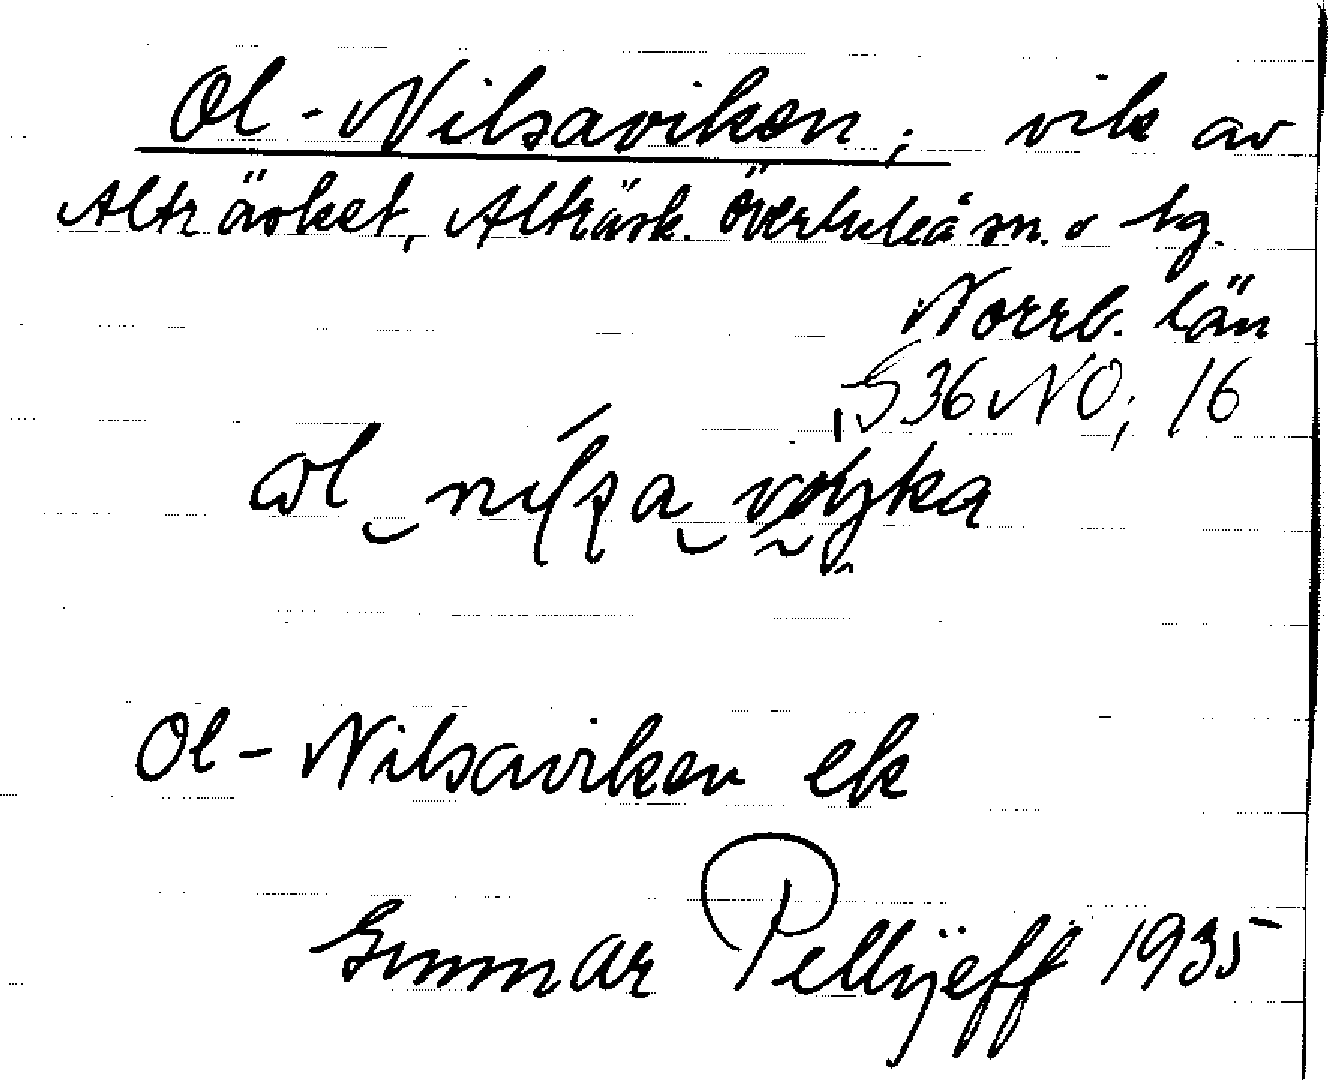 Ol-Nilsaviken; vik av
Alträsket, Alträsk. Överluleå sn. o tg.
Norrb. län
G36NO; 16
Ol-Nilsaviken ek
Gunnar Pellijeff 1935